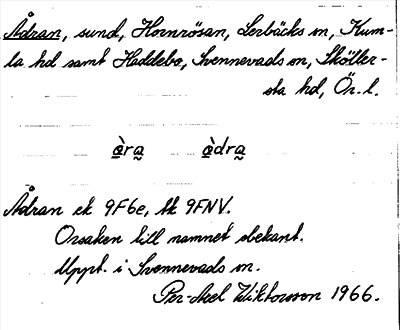 Ådran, sund, Hornrösan, Lerbäcks sn, Kum-
la hd samt Haddebo, Svennevads sn, Sköller-
sta hd, Ör. l.
àra̰ àdra̰
Ådran ek 9F6e, tk 9FNV.
Orsaken till namnet obekant.
Uppt. i Svennevads sn.
Per-Axel Wiktorsson 1966.